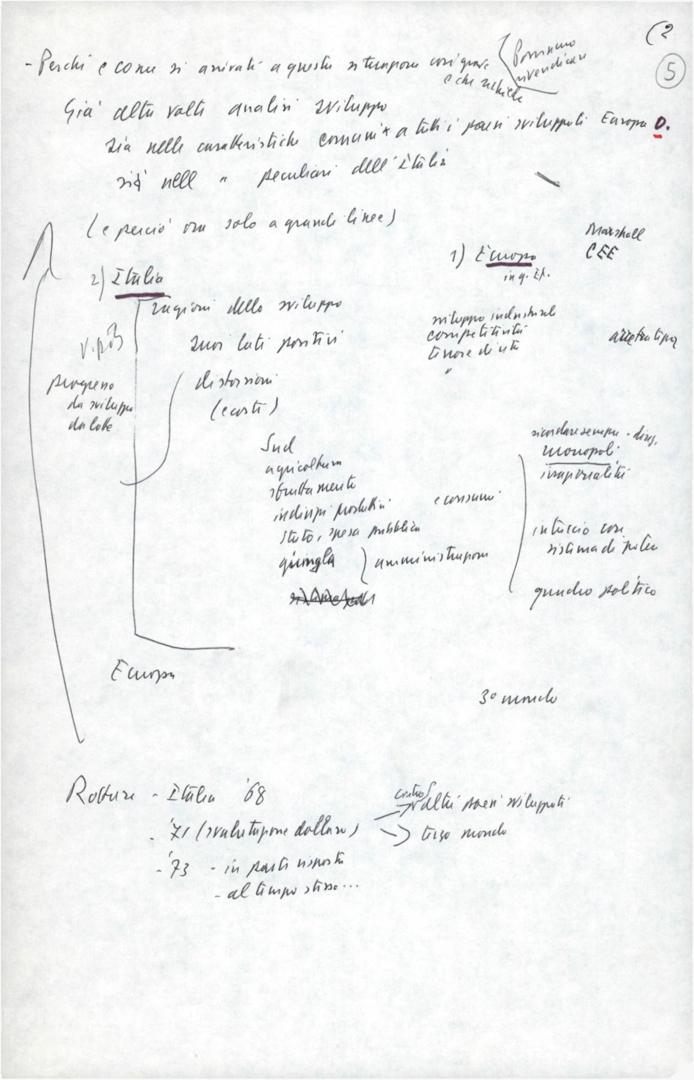 (2
5
- Perché e come si è arrivati a questa situazione così grave
e che rischia
Possiamo
rivendicare
Già altre volte analisi sviluppo
sia nelle caratteristiche comuni a tutti i paesi sviluppati Europa O.
sia nelle " peculiari dell'Italia
(e perciò ora solo a grandi linee)
Marshall
CEE
1) Europa
2) Italia
ragioni dello sviluppo
suoi lati positivi
sviluppo industriale
competitività
tenore di vita
"
v. p. 13
progresso
da sviluppo
da lotte
distorsioni
(e costi)
Sud
agricoltura
sfruttamento
indirizzi produttivi e consumi
Stato, spesa pubblica
giungla } amministrazione
ricordare sempre
monopoli
imperialisti
intreccio con
sistema di potere
quadro politico
Europa
3° mondo
Rotture - Italia '68
- '71 (svalutazione dollaro)
contro
→ altri paesi sviluppati
→ terzo mondo
- '73 - in parte risposta
- al tempo stesso...